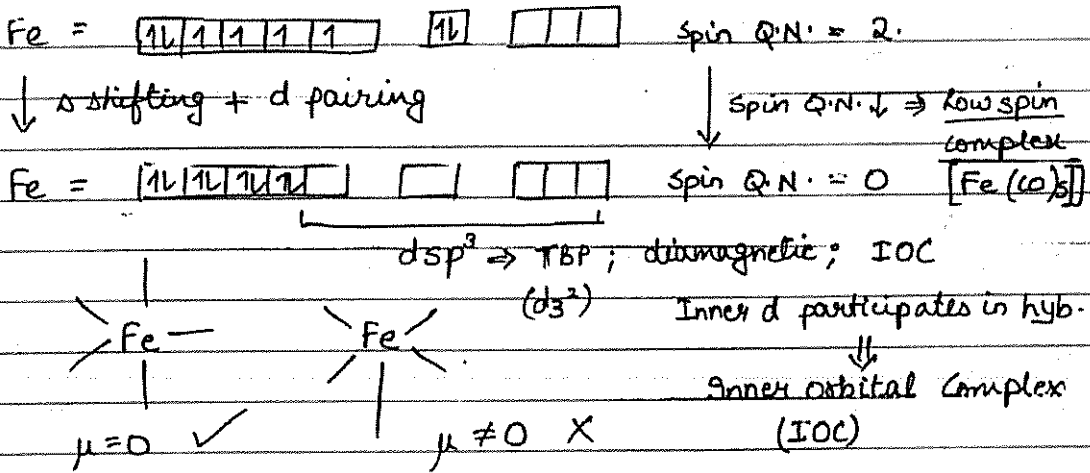 Fe = 1L 1 1 1 1 1L Spin Q.N. = 2.
↓ s shifting + d pairing ↓ Spin Q.N. ↓ ⇒ Low spin
complex
Fe = 1L 1L 1L 1L Spin Q.N. = 0 [Fe(CO)5]
dsp³ ⇒ TBP ; diamagnetic ; IOC
(dz²) Inner d participates in hyb.
Fe Fe ⇓
Inner orbital Complex
μ = 0 ✓ μ ≠ 0 X (IOC)